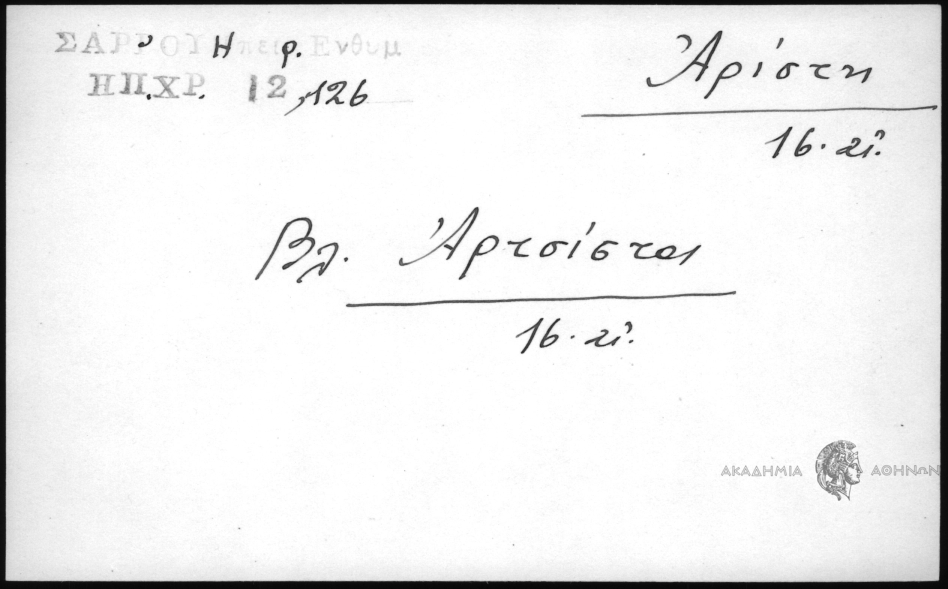 ΣΑΡΡΟΥ Ηπειρ. Ενθυμ
ΗΠ.ΧΡ. 12, 126
Ἀρίστη
16. αἰ.
Βλ. Ἀρτσίστα
16. αἰ.
ΑΚΑΔΗΜΙΑ ΑΘΗΝΩΝ